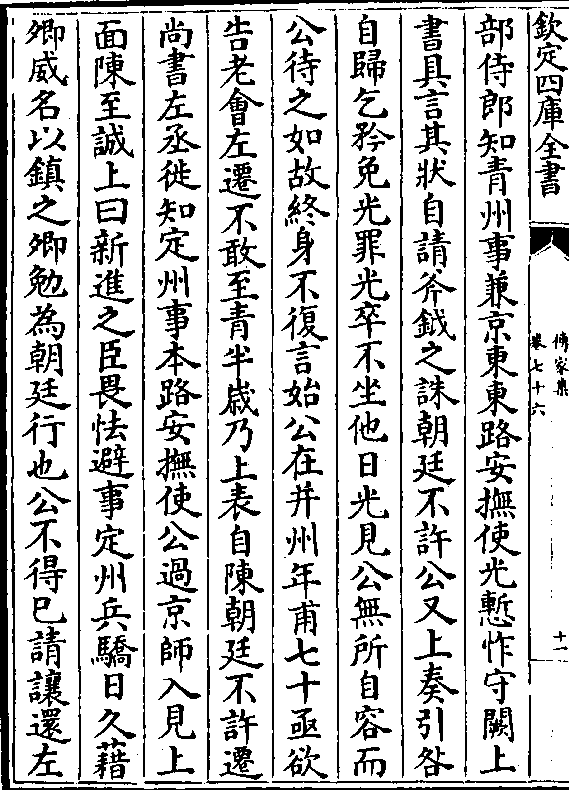 欽定四庫全書
傳家集
卷七十六
十一
部侍郎知青州事兼京東東路安撫使光慙怍守闕上
書具言其狀自請斧鉞之誅朝廷不許公又上奏引咎
自歸乞矜免光罪光卒不坐他日光見公無所自容而
公待之如故終身不復言始公在并州年甫七十亟欲
告老會左遷不敢至青半歲乃上表自陳朝廷不許遷
尚書左丞徙知定州事本路安撫使公過京師入見上
面陳至誠上曰新進之臣畏怯避事定州兵驕日久藉
卿威名以鎮之卿勉為朝廷行也公不得已請讓還左